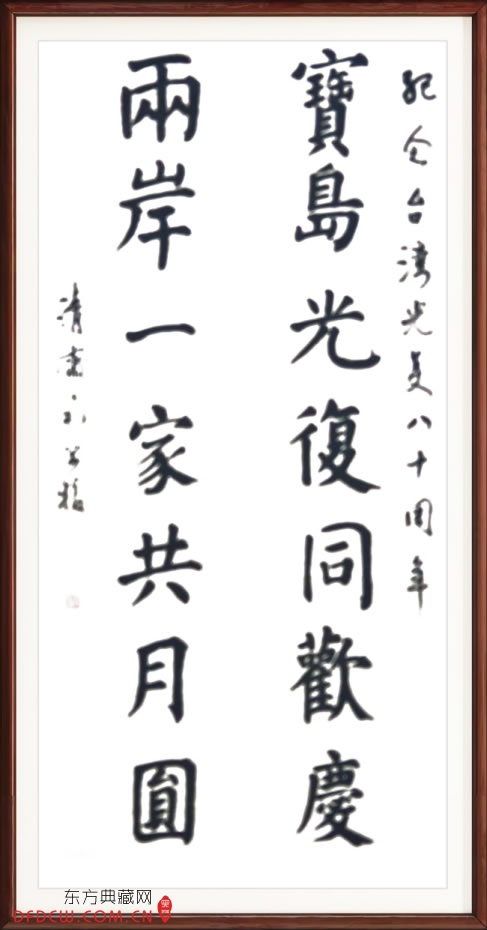 紀念台湾光复八十周年
寶島光復同歡慶
兩岸一家共月圓
清末
东方典藏网
DFDCW.COM.CN